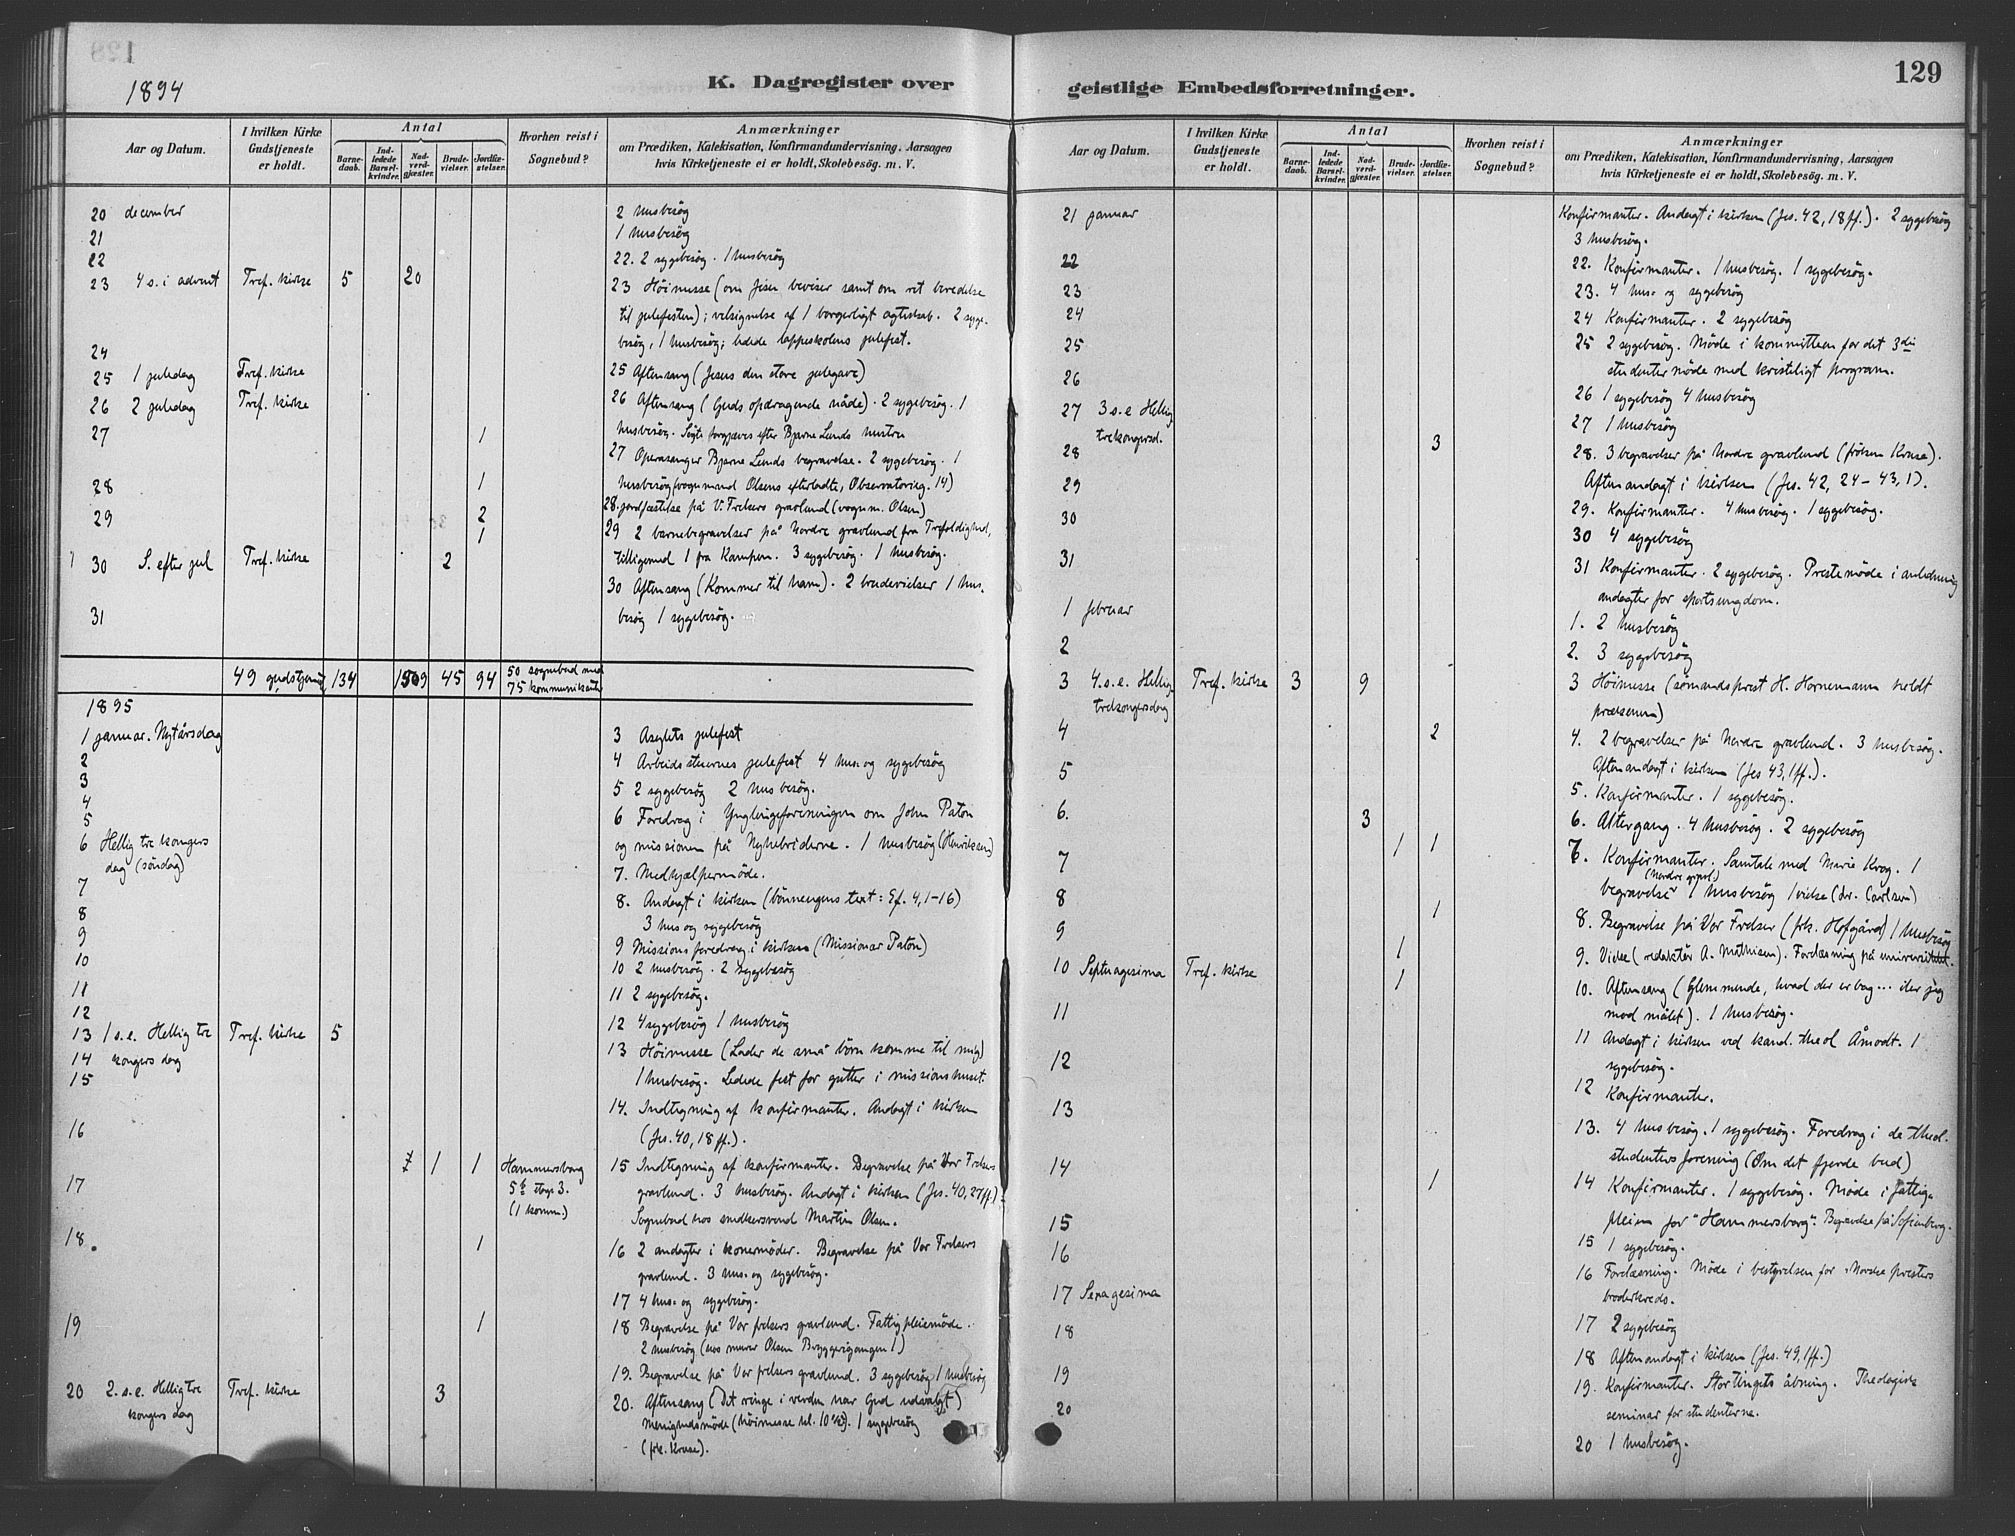 129
1894
K. Dagregister over
geistlige Embedsforretninger.
Aar og Datum.
I hvilken Kirke
Gudstjeneste
er holdt.
Antal
Barne-
daab.
Ind-
ledede
Barsel-
kvinder.
Nad-
verd-
gjæster.
Brude-
vielser.
Jordfæ-
stelser.
Hvorhen reist i
Sognebud?
Anmærkninger
om Prædiken, Katekisation, Konfirmandundervisning, Aarsagen
hvis Kirketjeneste ei er holdt, Skolebesøg. m. V.
20 december
2 husbesøg
21
1 husbesøg
22
22. 2 sygebesøg. 1 husbesøg
23 4 s. i advent Tref. kirke 5 20
23 Höimesse (om Jesu beviser samt om ret beredelse
til julefesten); velsignelse af 1 borgerligt ægteskab. 2 syge-
besøg, 1 husbesøg; ledede lappeskolens julefest.
24
25 1 juledag Tref. kirke
25 Aftensang (Jesus den store julegave)
26 2 juledag Tref. kirke
26 Aftensang (Guds opdragende nåde). 2 sygebesøg. 1
husbesøg. Søgte forgjæves efter Bjarne Lunds hustru
27 1
27 Operasanger Bjarne Lunds begravelse. 2 sygebesøg. 1
husbesøg (vognmand Olsens efterladte, Observatorieg. 14)
28 1
28. jordfæstelse på V. Frelsers gravlund (vognm. Olsen)
29 2
1
29 2 barnebegravelser på Nordre gravlund fra Trefoldighed,
tilligemed 1 fra Kampen. 3 sygebesøg. 1 husbesøg.
30 S. efter jul Tref. kirke 2
30 Aftensang (Kommer til ham). 2 brudevielser 1 hus-
besøg 1 sygebesøg.
31
49 gudstjenester 134 1509 45 94 50 sognebud med
75 kommunikanter
1895
1 januar. Nytårsdag
2
3
3 Asylets julefest
4
4 Arbeidsstuernes julefest 4 hus- og sygebesøg
5
5 2 sygebesøg 2 husbesøg.
6 Hellig tre kongers
dag (søndag)
6 Foredrag i Ynglingeforeningen om John Paton
og missionen på Nyhebriderne. 1 husbesøg (Henriksen)
7
7. Medhjælpermøde.
8
8. Andagt i kirken (bønneugens text: Ef. 4,1-16)
3 hus og sygebesøg
9
9 Missionsforedrag i kirken (Missionær Paton)
10
10 2 husbesøg. 2 sygebesøg
11
11 2 sygebesøg.
12
12 4 sygebesøg 1 husbesøg
13 1 s.e. Hellig tre
kongers dag Tref. kirke 5
13 Höimesse (Lader de små børn komme til mig)
1 husbesøg. Ledede fest for gutter i missionshuset.
14
14. Indtegning af konfirmanter. Andagt i kirken
(Jes. 40, 18 ff.).
15
16
1 1 Hammersborg
5b etage 3.
(1 komm.)
15 Indtegning af konfirmanter. Begravelse på Vor Frelsers
gravlund. 3 husbesøg. Andagt i kirken (Jes. 40, 27 ff.).
Sognebud hos snedkersvend Martin Olsen.
17
18. 1
16 2 andagter i konemøder. Begravelse på Vor Frelsers
gravlund. 3 hus- og sygebesøg.
17 4 hus- og sygebesøg.
19 1
18 Begravelse på Vor frelsers gravlund. Fattigpleiemøde.
2 husbesøg (hos murer Olsen Bryggerigangen 1)
19. Begravelse på Vor frelsers gravlund. 3 sygebesøg 1 husbesøg
20 2. s.e. Hellig tre
kongers dag Tref. kirke 3
20. Aftensang (Det ringe i verden har Gud udvalgt)
Menighedsmøde (höimesse kl. 10 ½). 1 sygebesøg
(frk. Kruse).
Aar og Datum.
I hvilken Kirke
Gudstjeneste
er holdt.
Antal
Barne-
daab.
Ind-
ledede
Barsel-
kvinder.
Nad-
verd-
gjæster.
Brude-
vielser.
Jordfæ-
stelser.
Hvorhen reist i
Sognebud?
Anmærkninger
om Prædiken, Katekisation, Konfirmandundervisning, Aarsagen
hvis Kirketjeneste ei er holdt, Skolebesög. m. V.
21 januar
Konfirmanter. Andagt i kirken (Jes. 42, 18 ff.). 2 sygebesøg
3 husbesøg.
22
22. Konfirmanter. 1 husbesøg. 1 sygebesøg.
23
23. 4 hus- og sygebesøg
24
24 Konfirmanter. 2 sygebesøg
25
25 2 sygebesøg. Møde i kommitteen for det 3die
studentermøde med kristeligt program.
26
26 1 sygebesøg 4 husbesøg
27 3 s.e Hellig
trekongersd.
27 1 husbesøg
28 3
28. 3 begravelser på Nordre gravlund (frøken Kruse).
Aftenandagt i kirken (Jes. 42, 24 - 43, 1).
29
29. Konfirmanter. 4 husbesøg. 1 sygebesøg.
30
30 4 sygebesøg
31
31 Konfirmanter. 2 sygebesøg. Prestemøde i anledning
andagter for sportsungdom.
1 februar
1. 2 husbesøg
2
2. 3 sygebesøg
3 4.s.e. Hellig
trekongersdag Tref. kirke 3 9
3 Höimesse (sømandsprest H. Hornemann heldt
prækenen)
4 2
4. 2 begravelser på Nordre gravlund. 3 husbesøg.
Aftenandagt i kirken (Jes 43, 1 ff.).
5
5. Konfirmanter. 1 sygebesøg.
6. 3
6. Altergang. 4 husbesøg. 2 sygebesøg
7 1 1
7. Konfirmanter. Samtale med Marie Krog. 1
(Nordre gravl.)
begravelse 1 husbesøg 1 vielse (dr. Carlsen)
8 1
8. Begravelse på Vor Frelser (frk. Hofgård) 1 husbesøg
9 1
9. Vielse (redaktør A. Mathisen). Forelæsning på universitetet.
10 Septuagesima Tref. kirke 1
10. Aftensang (Glemmende, hvad der er bag... iler jeg
mod målet). 1 husbesøg.
11
11 Andagt i kirken ved kand. theol Åmodt. 1
sygebesøg.
12
12 Konfirmanter.
13
13. 4 husbesøg. 1 sygebesøg. Foredrag i de theol.
studenters forening (Om det fjerde bud)
14 1
14 Konfirmanter. 1 sygebesøg. Møde i fattig-
pleien for "Hammersborg". Begravelse på Sofienberg.
15
15 1 sygebesøg.
16
16 Forelæsning. Møde i bestyrelsen for Norske presters
broderkreds.
17 Sexagesima
17 2 sygebesøg
18
18 Aftenandagt i kirken (Jes. 49, 1 ff.)
19
19. Konfirmanter. Stortingets åbning. Theologisk
seminar for studenterne.
20
20 1 husbesøg.